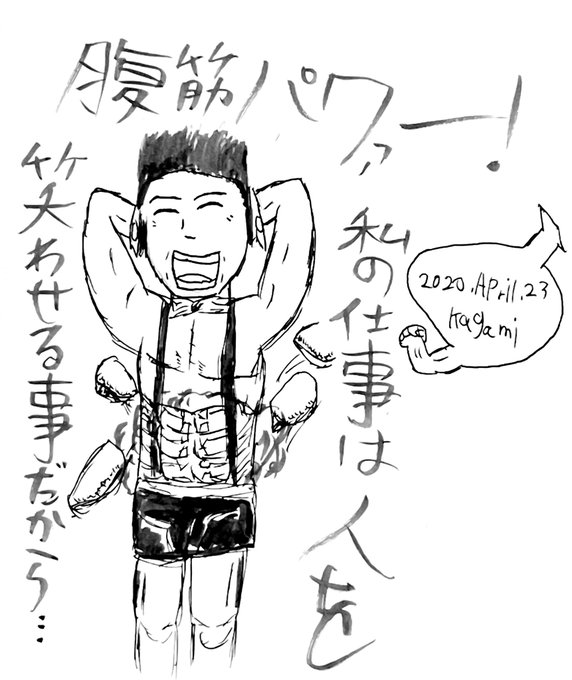 腹筋パワァー!
私の仕事は
人を
笑わせる事だから…
2020.April.23
Kagami